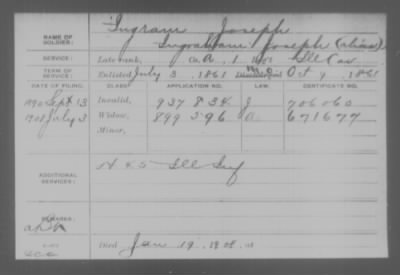 NAME OF SOLDIER: Ingram Joseph
Ingraham Joseph (alias)
SERVICE: Late rank, Co. A, 1 Ill Cav
TERM OF SERVICE: Enlisted July 3, 1861 Discharged Oct 9, 1861
DATE OF FILING. CLASS. APPLICATION NO. LAW. CERTIFICATE NO.
1890 Sept 13 Invalid, 937 834 J 706060
1908 July 3 Widow, 899 596 a 671677
Minor,
ADDITIONAL SERVICES: H 65 Ill Inf
REMARKS:
Died Jan 19, 1908